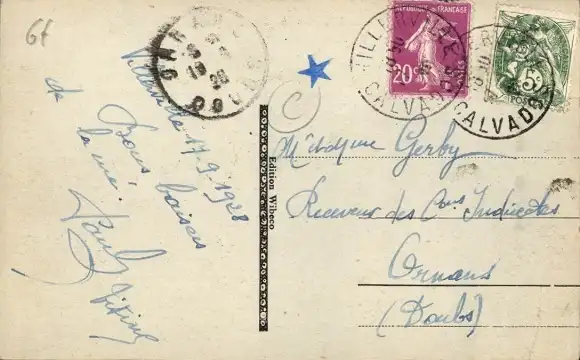 6f
Villerville 17.9.1928
Bons baisers
de
la mé
Paul
Edition Wibeco
REPUBLIQUE FRANÇAISE
20c
POSTES
VILLERVILLE
CALVADOS
5c
POSTES
CALVADOS
ORNANS
DOUBS
Gerby
Receveur des Cons Indirectes
Ornans
(Doubs)